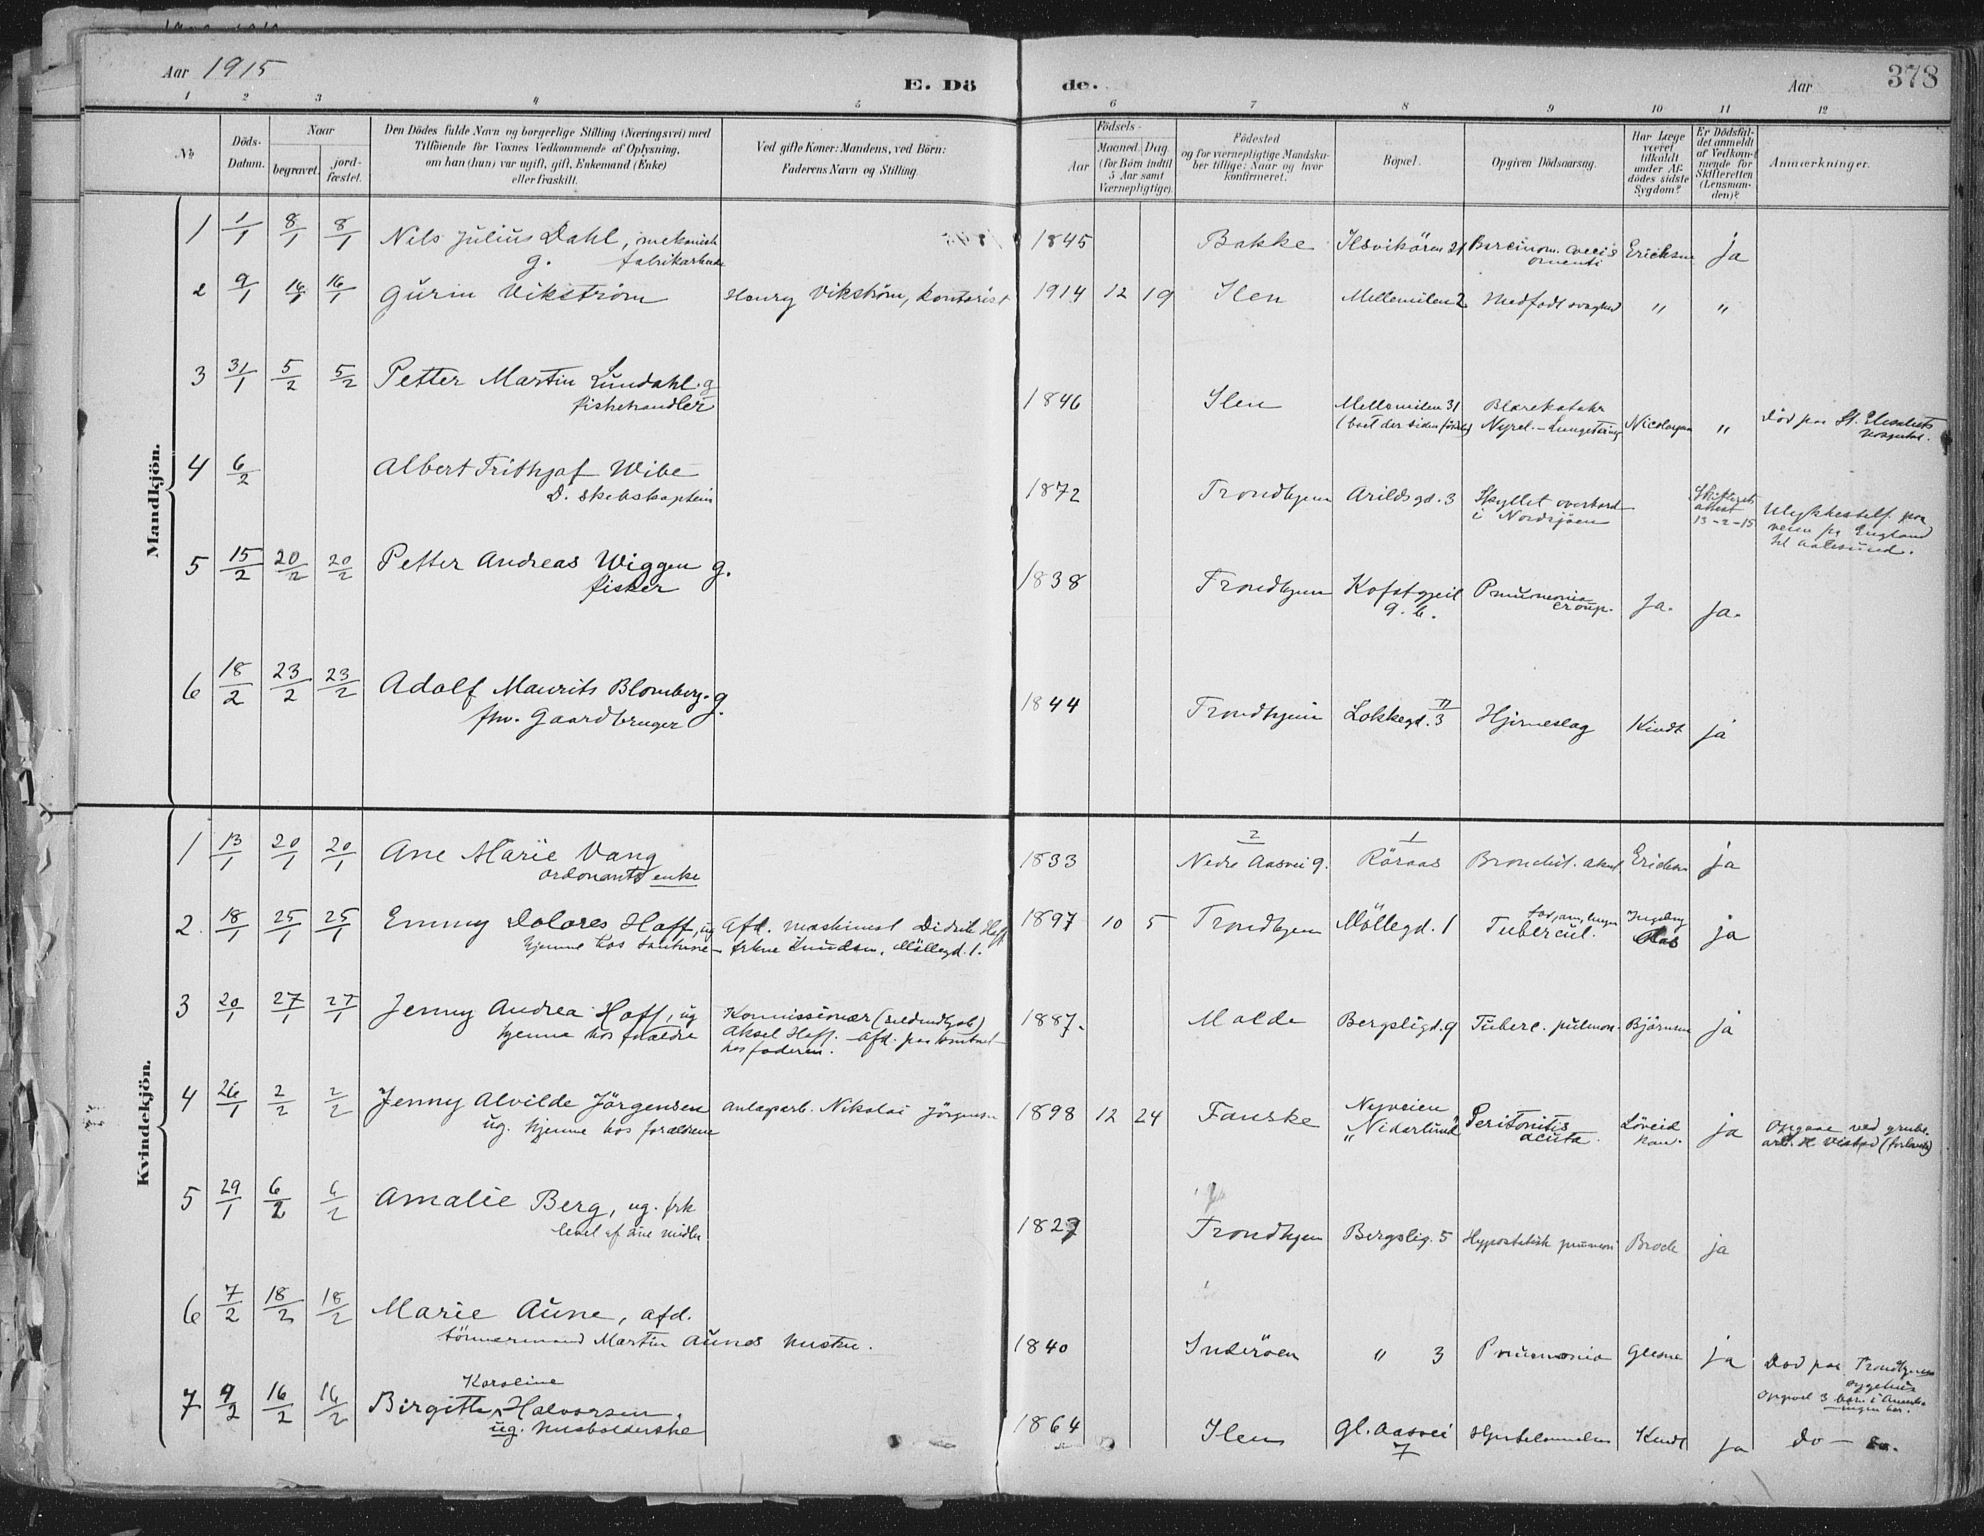 Aar 1915
E. Döde.
Aar
378
1 2 3 4 5 6 7 8 9 10 11 12
No
Döds-Datum.
Naar
begravet.
jordfæstet.
Den Dödes fulde Navn og borgerlige Stilling (Næringsvei) med
Tilföiende for Voxnes Vedkommende af Oplysning,
om han (hun) var ugift, gift, Enkemand (Enke)
eller fraskilt.
Ved gifte Koner: Mandens, ved Börn:
Faderens Navn og Stilling.
Födsels-
Aar
Maaned. Dag.
(for Börn indtil
5 Aar samt
Værnepligtige).
Födested
og for værnepligtige Mandska-
ber tillige: Naar og hvor
konfirmeret.
Bopæl.
Opgiven Dödsaarsag.
Har Læge
været
tilkaldt
under Af-
dödes sidste
Sygdom?
Er Dödsfal-
det anmeldt
af Vedkom-
mende for
Skifteretten
(Lensman-
den)?
Anmærkninger.
Mandkjön.
1 1/1 8/1 8/1 Nils Julius Dahl, mekanisk 1845 Bakke Ilsvikören 21 coeci & Ericksen ja
g. fabrikarbeider omenti
2 9/1 16/1 16/1 Gurin Vikström Henry Vikström, kontorist 1914 12 19 Ilen Mellemilen 2 Medfödt svaghed " "
3 31/1 5/2 5/2 Petter Martin Lundahl. g 1846 Ilen Mellemilen 31 Blærekatahr Nicolaysen " Död paa St. Elisabeths
fiskehandler (boet der siden födsel) Nyrel. - Hospital.
4 6/2 Albert Frithjof Wibe 1872 Trondhjem Arildsgd. 3 Skyllet overbord Skifterets attest 13-2-15 Ulykkestilf. paa
skibskaptein i Nordsjöen veien fra England
til Aalesund.
5 15/2 20/2 20/2 Petter Andreas Wiggen g. 1838 Trondhjem 9. b. Pneumonia ja. ja.
fisker croup.
6 18/2 23/2 23/2 Adolf Maurits Blomberg. g. 1844 Trondhjem Lökkegd. 3 Hjerneslag Kindt ja
fhv. Gaardbruger
Kvindekjön.
1 13/1 20/1 20/1 Ane Marie Vang 1833 2 Nedre Aasvei 9. 1 Röraas Bronchit. akut. Ericksen ja
ordonants enke
2. 18/1 25/1 25/1 Emmy Dolores Hoff, ug Afd. maskinist Didrik Hoff 1897 10 5 Trondhjem Möllegd. 1 Tubercul. ja
hjemme hos tanterne - Knudsen, Möllegd. 1.
3 20/1 27/1 27/1 Jenny Andrea Hoff, ug Kommissionær 1887. Molde Bergsligd. 9 Tuberc. pulmon. Björnsen ja
hjemme hos forældre Aksel Hoff. - Afd. paa
hos faderen.
4 26/1 2/2 2/2 Jenny Alvilde Jörgensen Anlægsarb. Nikolai Jörgensen 1898 12 24 Fauske Nyveien Peritonitis ja Opgave ved grube-
ug. hjemme hos forældrene "Niderlund" acuta. arb.
5 29/1 6/2 6/2 Amalie Berg, ug. frk 1827 Trondhjem Bergslig. 5 Hypostatisk pneumoni ja
levet af sine midler
6 7/2 18/2 18/2 Marie Aune, afd. 1840 Inderöen " 3 Pneumonia ja Död paa Trondhjems
tömmermand Martin Aunes hustru. sygehus
Opgivet 3 börn i Amerika
ingen her.
7 9/2 16/2 16/2 Birgitte Karoline Halvorsen. 1864 Ilen Gl. Aasvei 7 Kindt ja do - do.
ug. husholderske